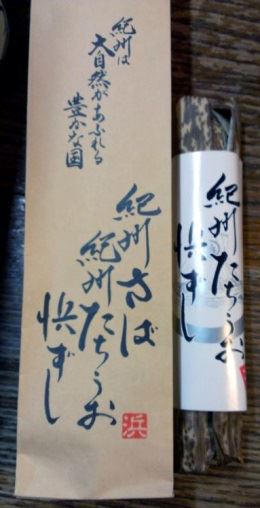 紀州は
大自然があふれる
豊かな国
紀州さば
紀州たちうお
浜ずし
浜
紀州たちうお
浜ずし